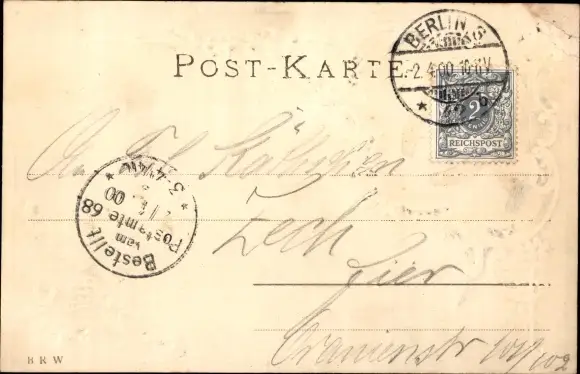 POST-KARTE
BERLIN S
-2.4.00. 10-11V.
* 42 b
2
REICHSPOST
Bestellt
vom
Postamte 68
00
An Frl. Käthchen
Zech
hier
Oranienstr 101/102
B R W